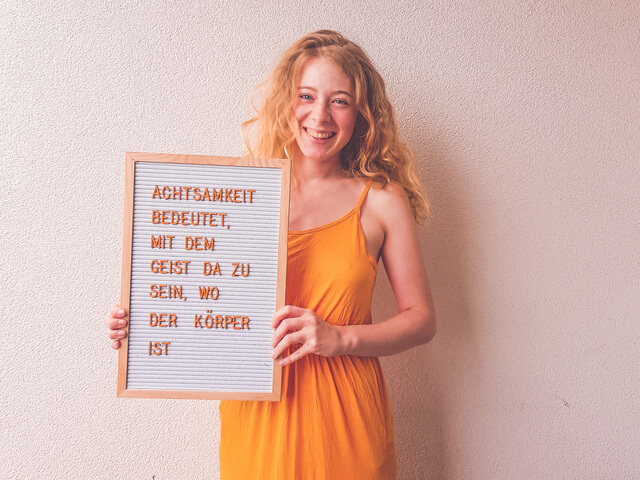 ACHTSAMKEIT
BEDEUTET,
MIT DEM
GEIST DA ZU
SEIN, WO
DER KÖRPER
IST